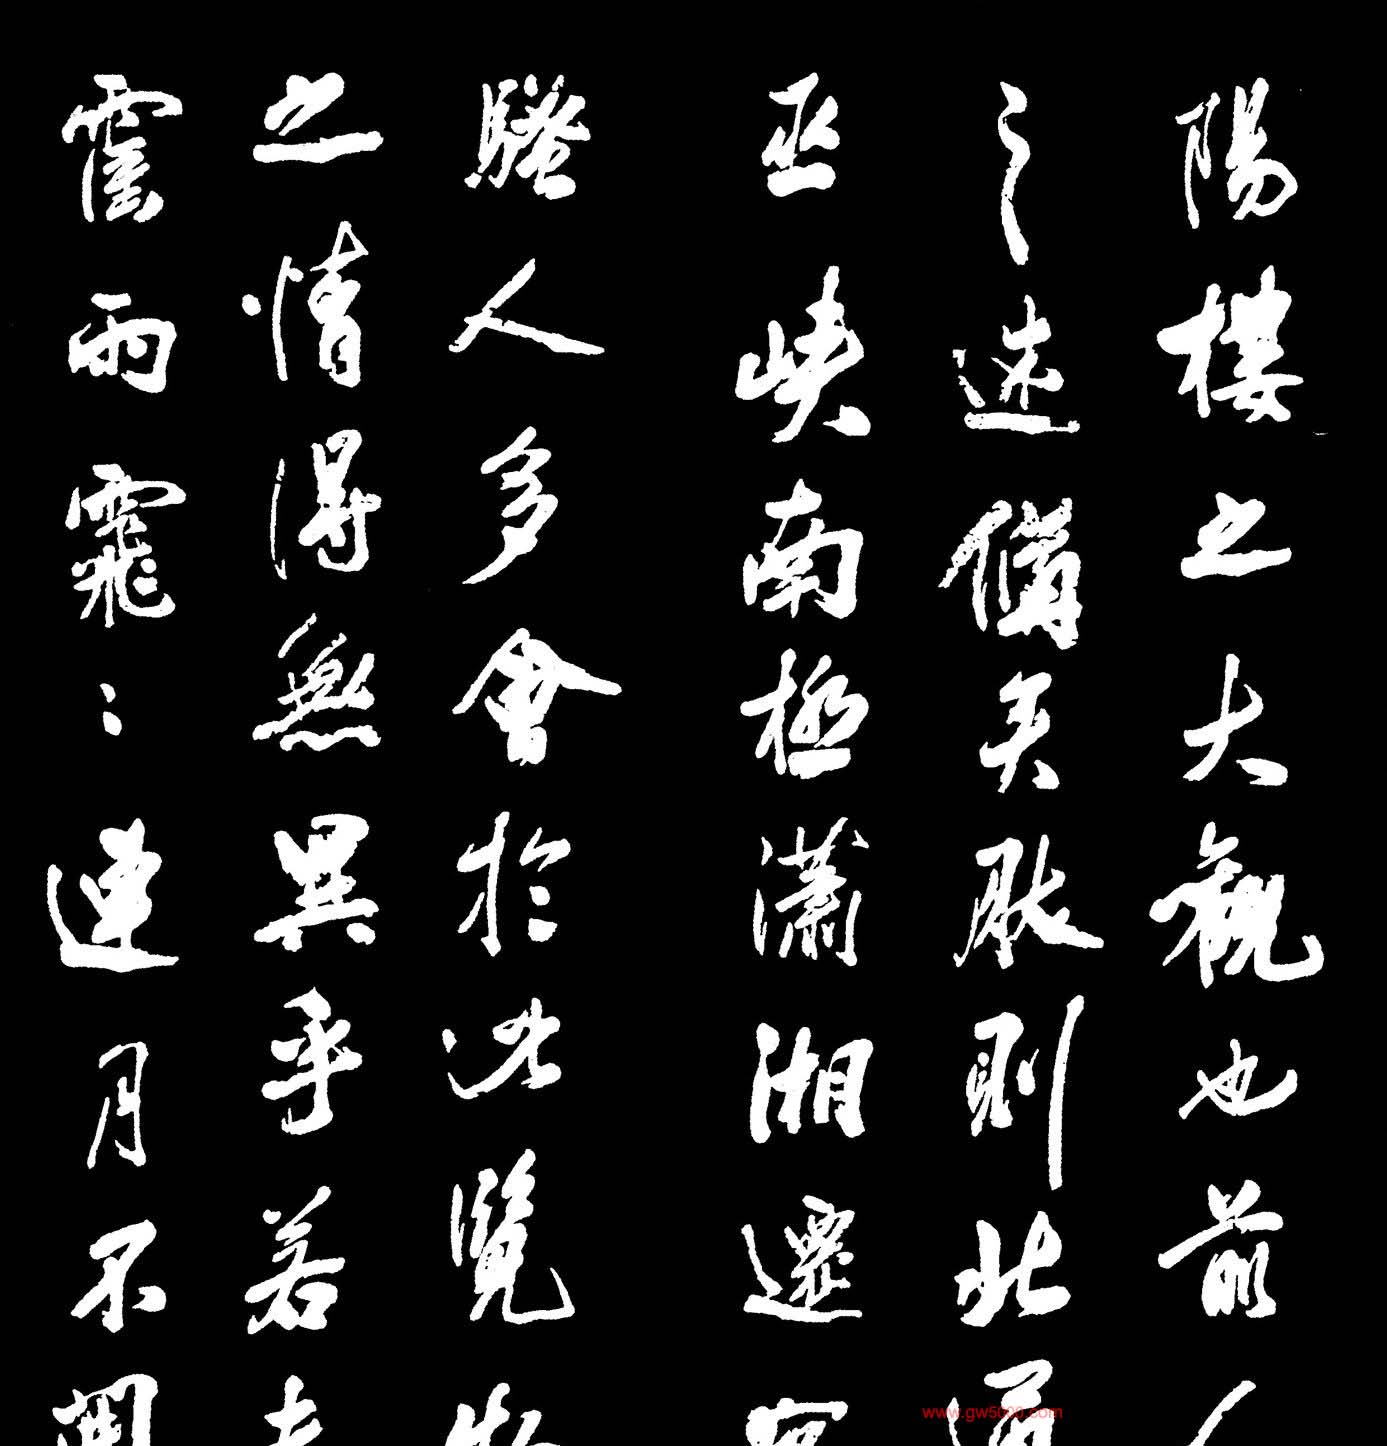 陽樓之大觀也前人
之述備矣然則北通
巫峽南極瀟湘遷客
騷人多會於此覽物
之情得無異乎若夫
霪雨霏〻連月不開
www.gw5000.com